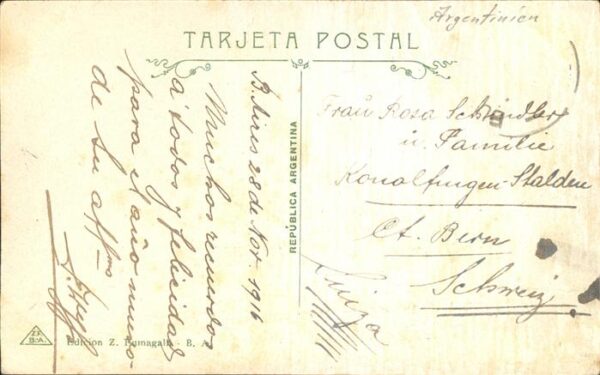 Argentinien
TARJETA POSTAL
B. Aires 28 de Nov. 1916
Muchos recuerdos
a todos y felicidad
para el año nuevo
de su affmo
REPÚBLICA ARGENTINA
Frau Rosa Schindler
u. Familie
Konolfingen-Stalden
Ct. Bern
Schweiz
Suiza
Edicion Z. Fumagalli - B. A.